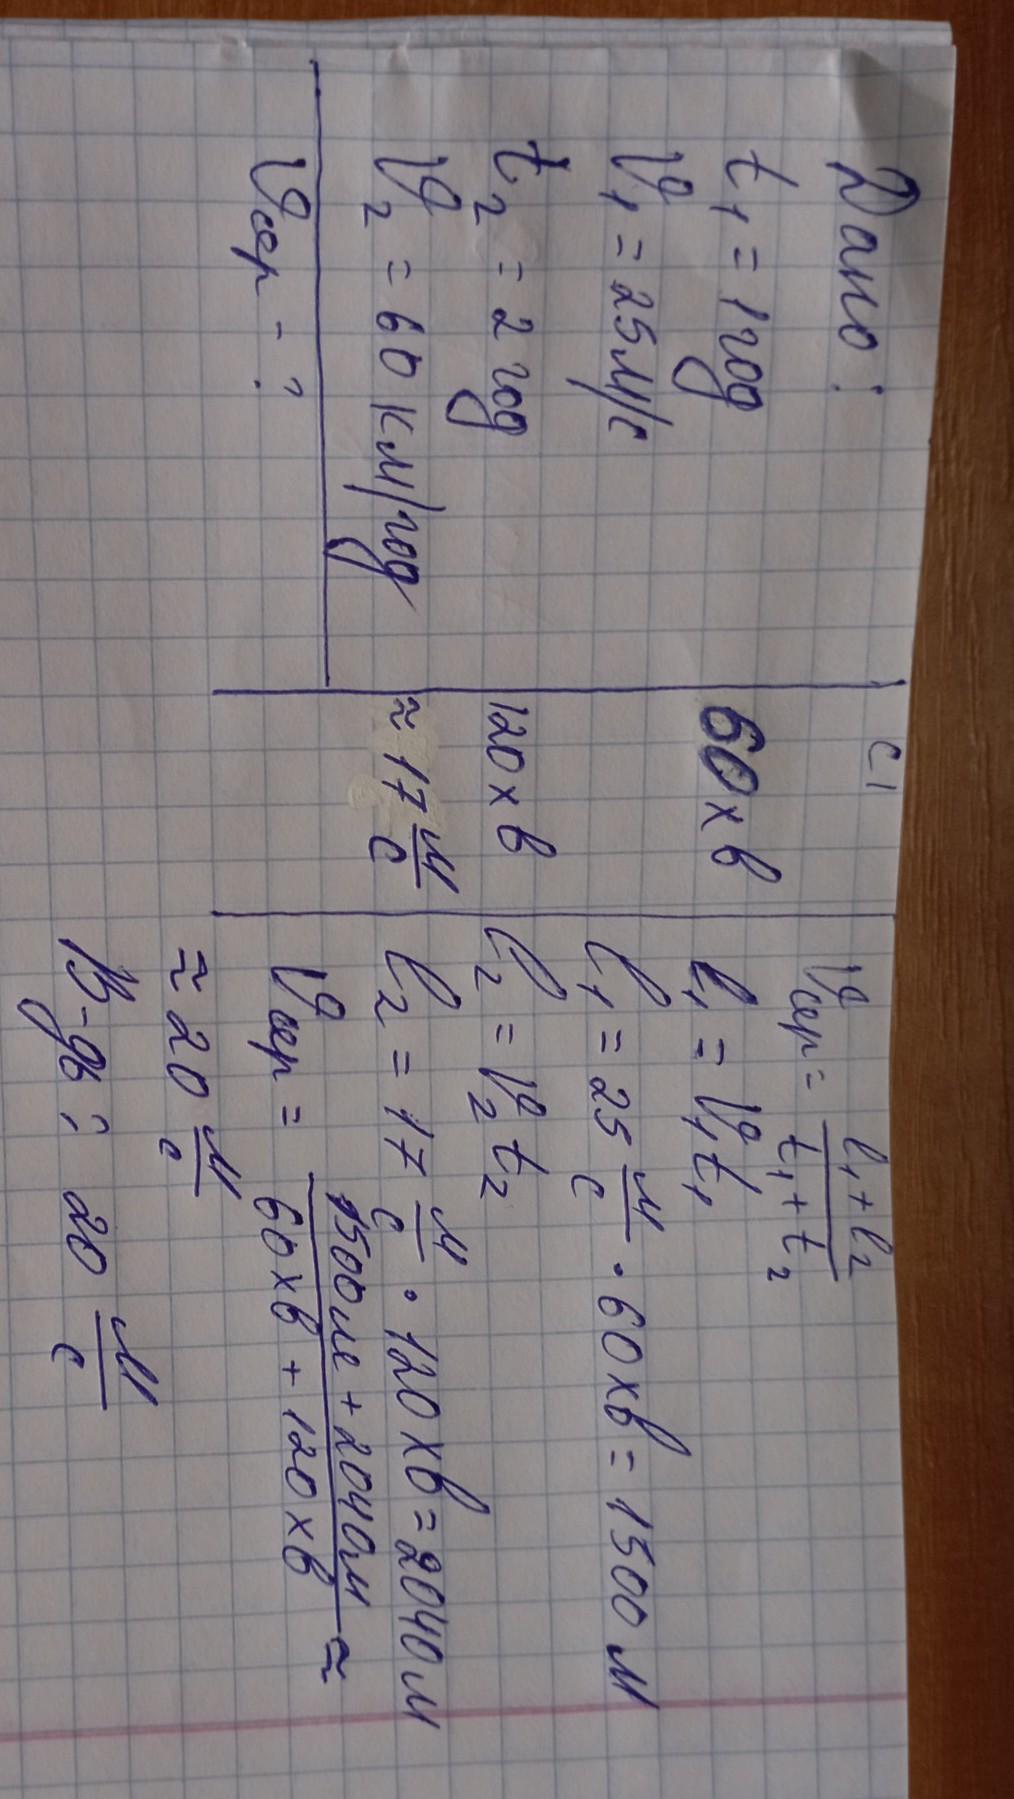 Дано:
t₁ = 1 год
V₁ = 25 м/с
t₂ = 2 год
V₂ = 60 км/год
Vсер - ?
СІ
60 хв
120 хв
≈ 17 м/с
Vсер = l₁ + l₂ / t₁ + t₂
l₁ = V₁t₁
l₁ = 25 м/с · 60 хв = 1500 м
l₂ = V₂t₂
l₂ = 17 м/с · 120 хв = 2040 м
Vсер = 1500м + 2040м / 60 хв + 120 хв ≈
≈ 20 м/с
В-дь: 20 м/с